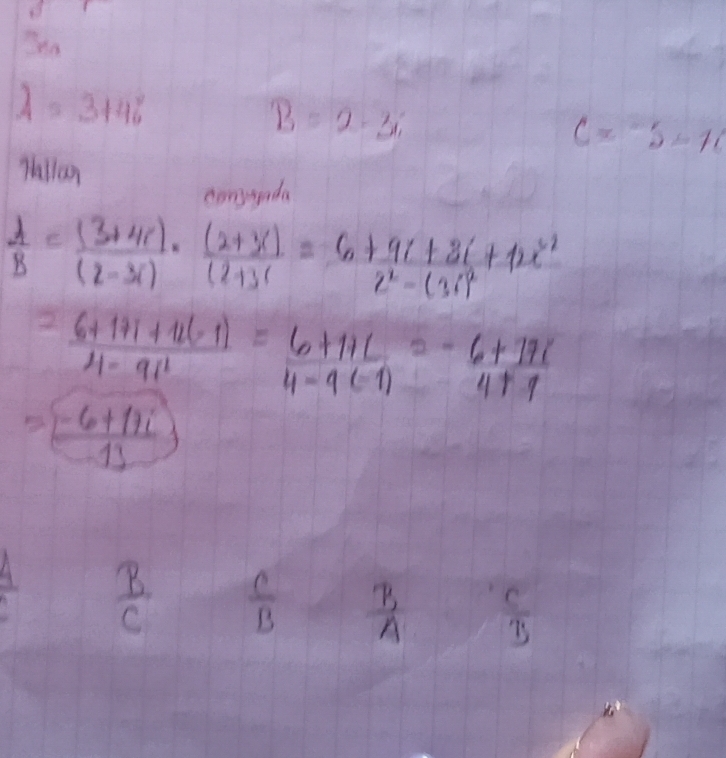 Sea
A = 3+4i B = 2-3i C = -5-7i
Hallar
conjugada
A/B = (3+4i)/(2-3i) · (2+3i)/(2+3i = 6+9i+8i+12i²/2²-(3i)²
= 6+17i+12(-1)/4-9i² = 6+17i/4-9(-1) = -6+17i/4+9
= -6+17i/13
A/C B/C C/B B/A C/B